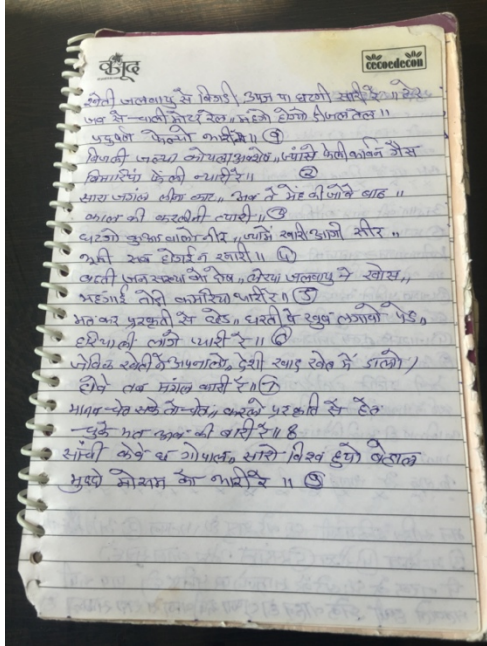 कूंद
cecoedecon
खेती जलवायु से बिगडी उपज पा घटगी सारी रे ॥ टेर
जब से चाली मोटर रेल,, महंगो होगो डीजल तेल ॥
प्रदुषण फेलो भारी रे ॥ ①
बिजली जल्या कोयला,, ज्यासे फेली कार्बन गैस
बिमारियां फेली न्यारी रे ॥ ②
सारा जगंल लीना काट,, अब तो मेह की जोवे बाट ॥
काल की करलीनी त्यारी ॥ ③
घटगो कुआ वालो नीर,, ज्यामें खारी आगी सीर,,
भुमी सब होगई न खारी ॥ ④
बढती जनसंख्या को दोष,, लेरया जलवायु ने खोस,,
महगाई तोडे कमरिया थारी रे ॥ ⑤
मत कर प्रकृती से छेड,, धरती पे खुब लगावो पेड,,
हरियाली लागे प्यारी रे ॥ ⑥
जेविक खेती ने अपनालो,, देशी खाद खेत में डालो /
होवे तब मंगल कारी रे ॥ ⑦
मानव चेत सके तो चेत,, करले प्रकृति से हेत
चुके मत अब की बारी रे ॥ 8
सांची केवे छ गोपाल,, सारो विश्व हुयो बेहाल
मुद्दो मोसम को भारी रे ॥ ⑨